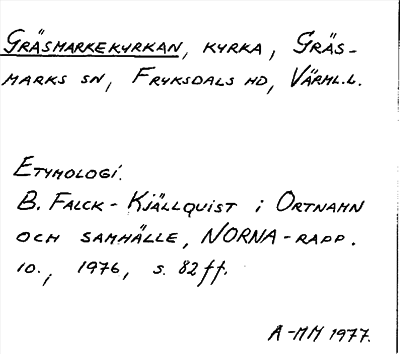 GRÄSMARKEKYRKAN, KYRKA, GRÄS-
MARKS SN, FRYKSDALS HD, VÄRML.L.
ETYMOLOGI.
B. FALCK-KJÄLLQUIST i ORTNAMN
OCH SAMHÄLLE, NORNA-RAPP.
10., 1976, s. 82 ff.
A-MM 1977.